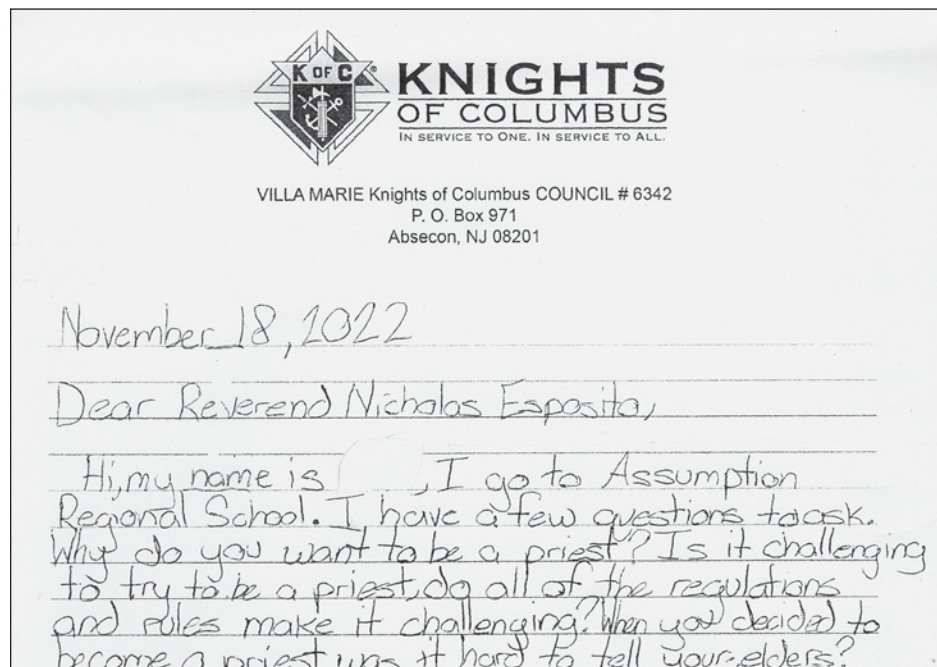 K OF C®
KNIGHTS
OF COLUMBUS
IN SERVICE TO ONE. IN SERVICE TO ALL.
VILLA MARIE Knights of Columbus COUNCIL # 6342
P. O. Box 971
Absecon, NJ 08201
November 18, 2022
Dear Reverend Nicholas Esposito,
Hi, my name is , I go to Assumption
Regional School. I have a few questions to ask.
Why do you want to be a priest? Is it challenging
to try to be a priest, do all of the regulations
and rules make it challenging? When you decided to
become a priest was it hard to tell your elders?